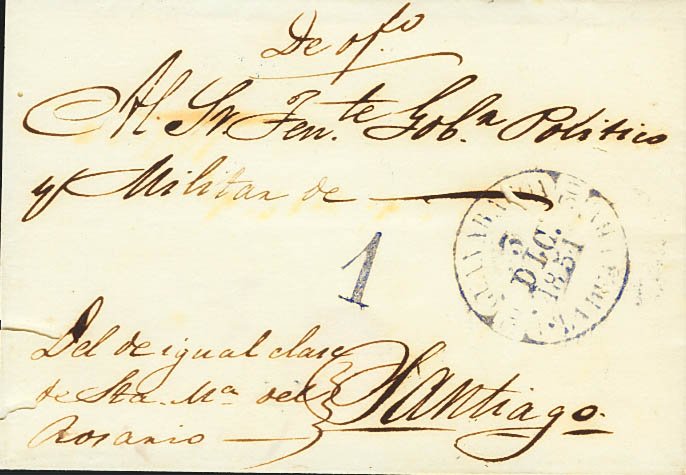 De ofo
Al Sr Ten.te Gob.n Politico
y Militar de
5
DIC.
1851
1
Del de igual clase
de Sta. Ma del
Rosario
Santiago.